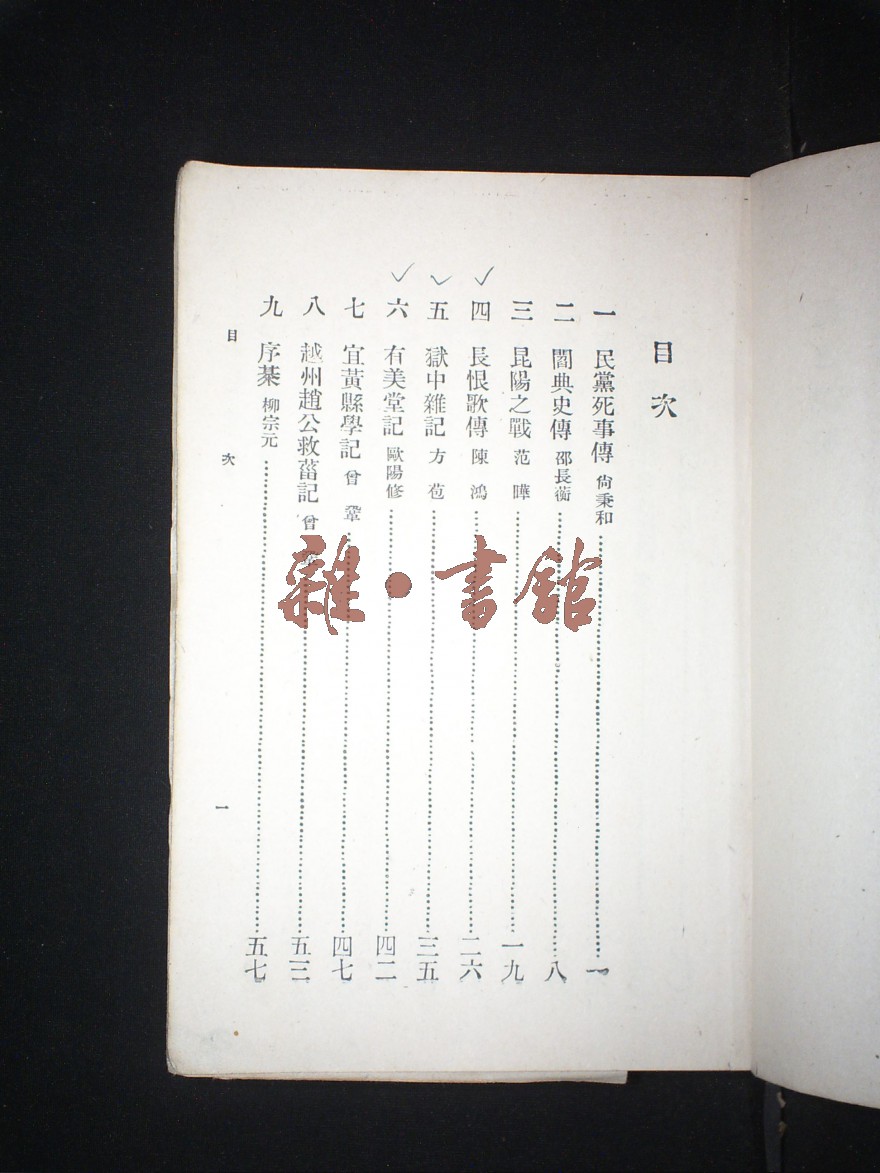 目次
一 民黨死事傳 尙秉和 一
二 閻典史傳 邵長蘅 八
三 昆陽之戰 范曄 一九
四 長恨歌傳 陳鴻 二六
五 獄中雜記 方苞 三五
六 有美堂記 歐陽修 四二
七 宜黃縣學記 曾鞏 四七
八 越州趙公救菑記 曾 五三
九 序棊 柳宗元 五七
目次 一
雜·書館